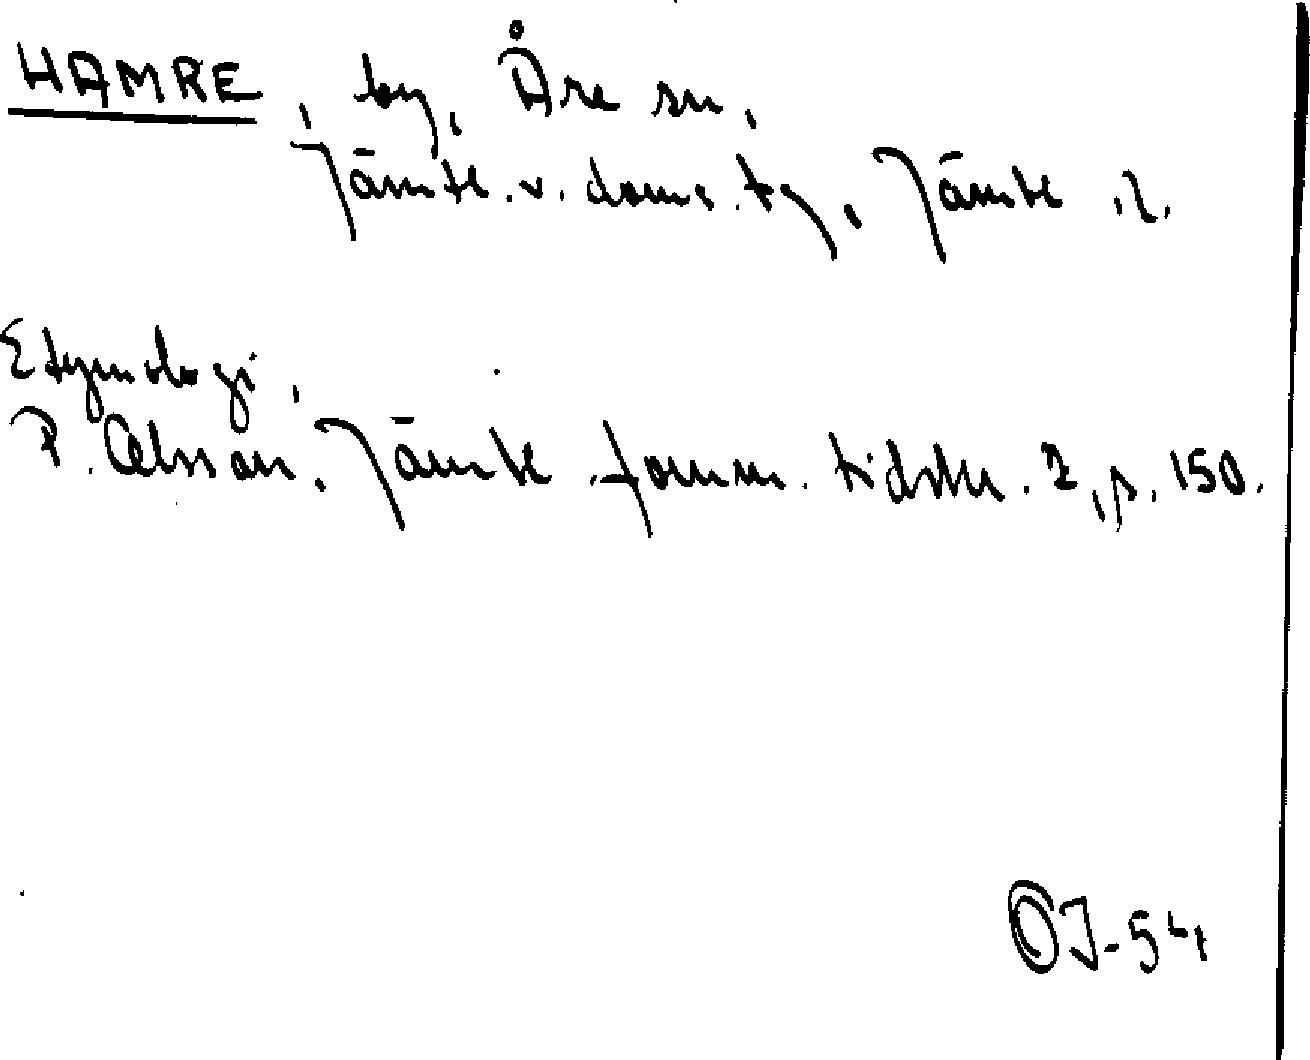 HAMRE, by, Åre sn,
Jämtl. v. doms. tg, Jämtl. l.
Etymologi,
P. Olsson, Jämtl. fornm. tidskr. 2, s. 150.
OJ-54